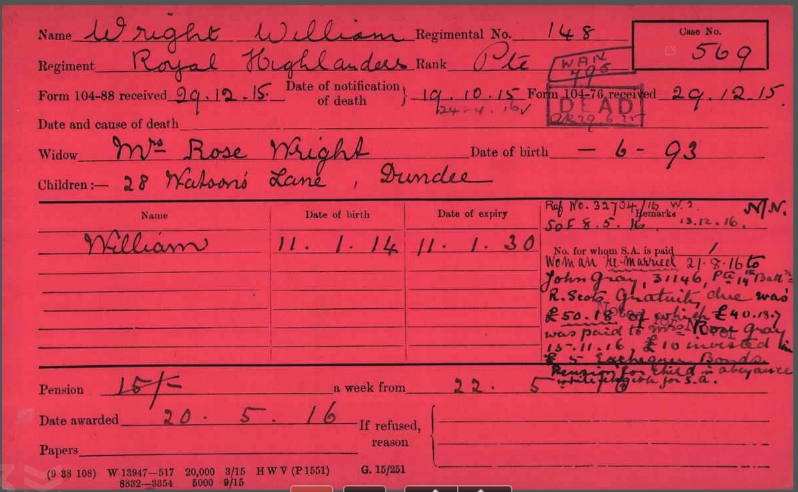 Name Wright William Regimental No. 148 Case No.
Regiment Royal Highlanders Rank Pte 569
WAN
495
Form 104-88 received 29.12.15. Date of notification of death } 19.10.15. Form 104-76 received 29.12.15.
24-4-16
DEAD
Date and cause of death
Widow Mrs Rose Wright Date of birth - 6 - 93
Children:— 28 Watson's Lane, Dundee
Name Date of birth Date of expiry
William 11. 1. 14 11. 1. 30
Ref No. 32704/16 W.2. N/N.
Remarks
SoF 8.5.16 13.12.16.
No. for whom S.A. is paid 1
Woman Re-married 21.8.16 to
John Gray, 31146, Pte 14th Battn
R. Scots. Gratuity due was
£50.18 of which £40.18.7
was paid to Mrs Rose Gray
15-11-16, £10 invested in
£5 Exchequer Bonds.
Pension for child in abeyance
while eligible for S.A.
Pension 15/- a week from 22. 5
Date awarded 20. 5. 16 If refused,
reason
Papers
(9 38 108) W 13947—517 20,000 3/15 H W V (P 1551) G. 15/251
8832—3354 5000 9/15